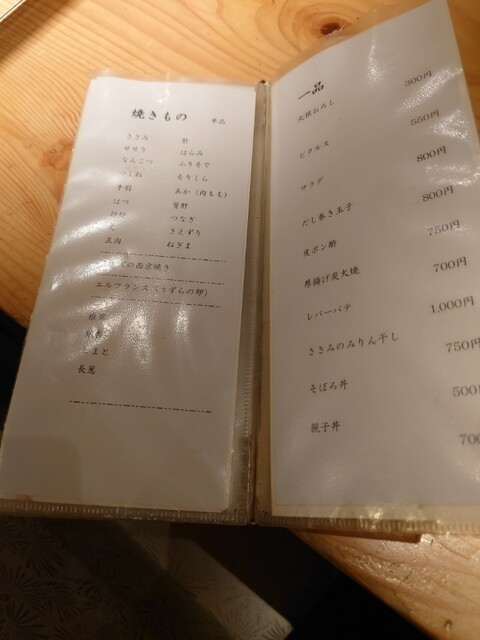 焼きもの 単品
ささみ 肝
せせり はらみ
なんこつ ふりそで
つくね そりくら
手羽 あか(内もも)
はつ 背肝
砂肝 つなぎ
さえずり
正肉 ねぎま
の西京焼き
エルフランス(うずらの卵)
椎茸
まと
長葱
一品
大根おろし 300円
ピクルス 550円
サラダ 800円
だし巻き玉子 800円
皮ポン酢 750円
厚揚げ炭火焼 700円
レバーパテ 1,000円
ささみのみりん干し 750円
そぼろ丼 500円
親子丼 700